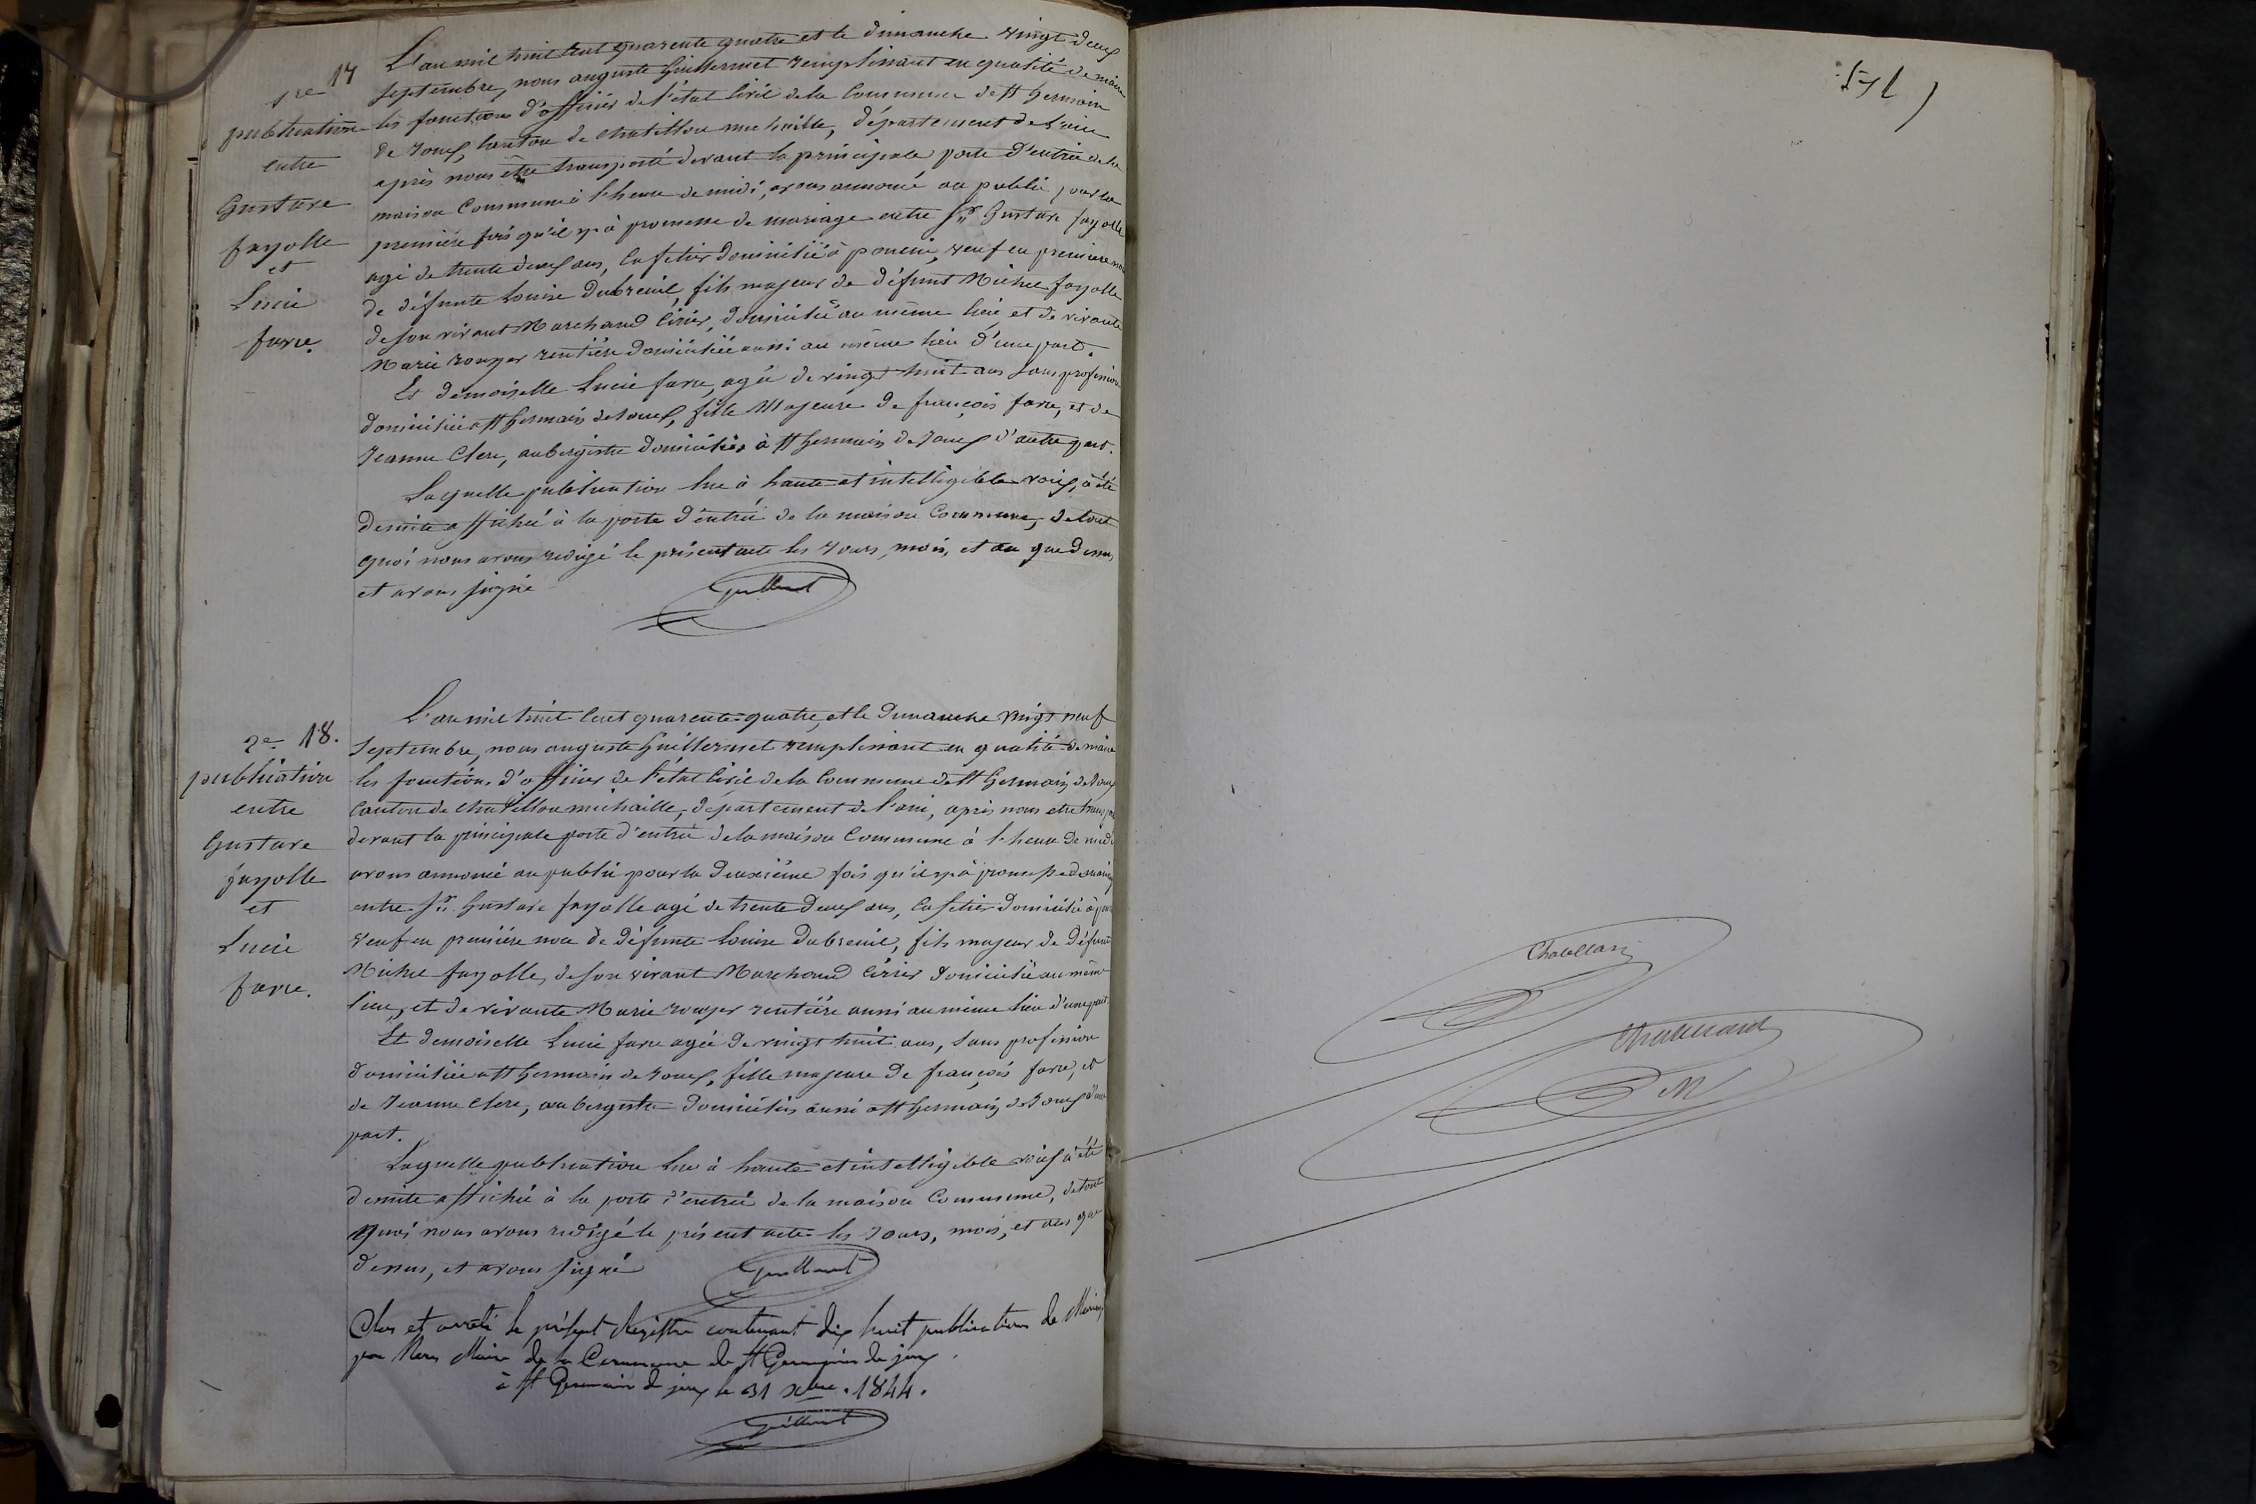 17
1re
publication
entre
Gustave
fayolle
et
Lucie
favre.
L'an mil huit cent quarente quatre et le dimanche vingt deux
septembre, nous auguste Guillermet remplissant en qualité de maire
les fonctions d'officier de l'état Civil de la Commune de St Germain
de Joux, Canton de Chatillon michaille, département de L'ain
après nous être transporté devant la principale porte d'entrée de la
maison Commune à l'heure de midi, avons annoncé au public pour la
première fois qu'il y à promesse de mariage entre Sr Gustave fayolle
agé de trente deux ans, Cafetier domicilié à poncin, veuf en première
de défunte Louise Dubreuil, fils majeur de défunt Michel fayolle
de son vivant Marchand Cirier, domicilié au même lieu et de vivante
Marie rouyer rentière domiciliée aussi au même lieu d'une part.
Et demoiselle Lucie favre, agée de vingt huit ans sans profession
domiciliée a St Germain de Joux, fille Majeure de françois favre, et de
Jeanne Clerc, aubergiste domiciliés à St Germain de Joux d'autre part.
Laquelle publication lue à haute et intelligible voix, à été
de suite affiché à la porte d'entrée de la maison Commune, de tout
quoi nous avons redigé le présent acte les Jours, mois, et an que dessus
et avons signé
Guillermet
2e 18.
publication
entre
Gustave
fayolle
et
Lucie
favre.
L'an mil huit Cent quarente-quatre, et le Dimanche vingt neuf
Septembre, nous auguste Guillermet remplissant en qualité de maire
les fonctions d'officier de l'état Civil de la Commune de St Germain de Joux
Canton de Chatillon michaille, departement de l'ain, après nous etre
devant la principale porte d'entrée de la maison Commune à l'heure de midi
avons annoncé au public pour la deuxième fois qu'il y à promesse de
entre Sr Gustave fayolle agé de trente deux ans, Cafetier domicilié à
veuf en première noce de défunte Louise Dubreuil, fils majeur de défunt
Michel fayolle, de son vivant Marchand Cirier domicilié au même
lieu, et de vivante Marie rouyer rentière aussi au même lieu d'une part.
Et demoiselle Lucie favre agée de vingt huit ans, sans profession
domiciliée a St Germain de Joux, fille majeure de françois favre, et
de Jeanne Clerc, aubergiste domiciliés aussi a St Germain de Joux
part.
Laquelle publication lue à haute et intelligible voix à été
de suite affiché à la porte d'entrée de la maison Commune, de tout
Quoi nous avons redigé le présent acte les Jours, mois, et ans que
dessus, et avons signé
Guillermet
Clos et arreté le présent Registre contenant dix huit publications de
par Nous Maire de la Commune de St Germain de joux
à St Germain de joux le 31 Xbre 1844.
Guillermet